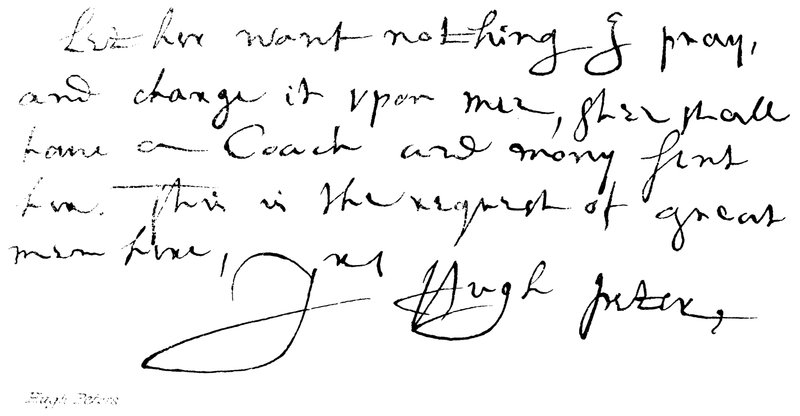 Let her want nothing I pray,
and change it vpon mee, shee shall
haue a Coach and mony sent
her. This is the request of great
men here,
Hugh Peter,
Hugh Peters